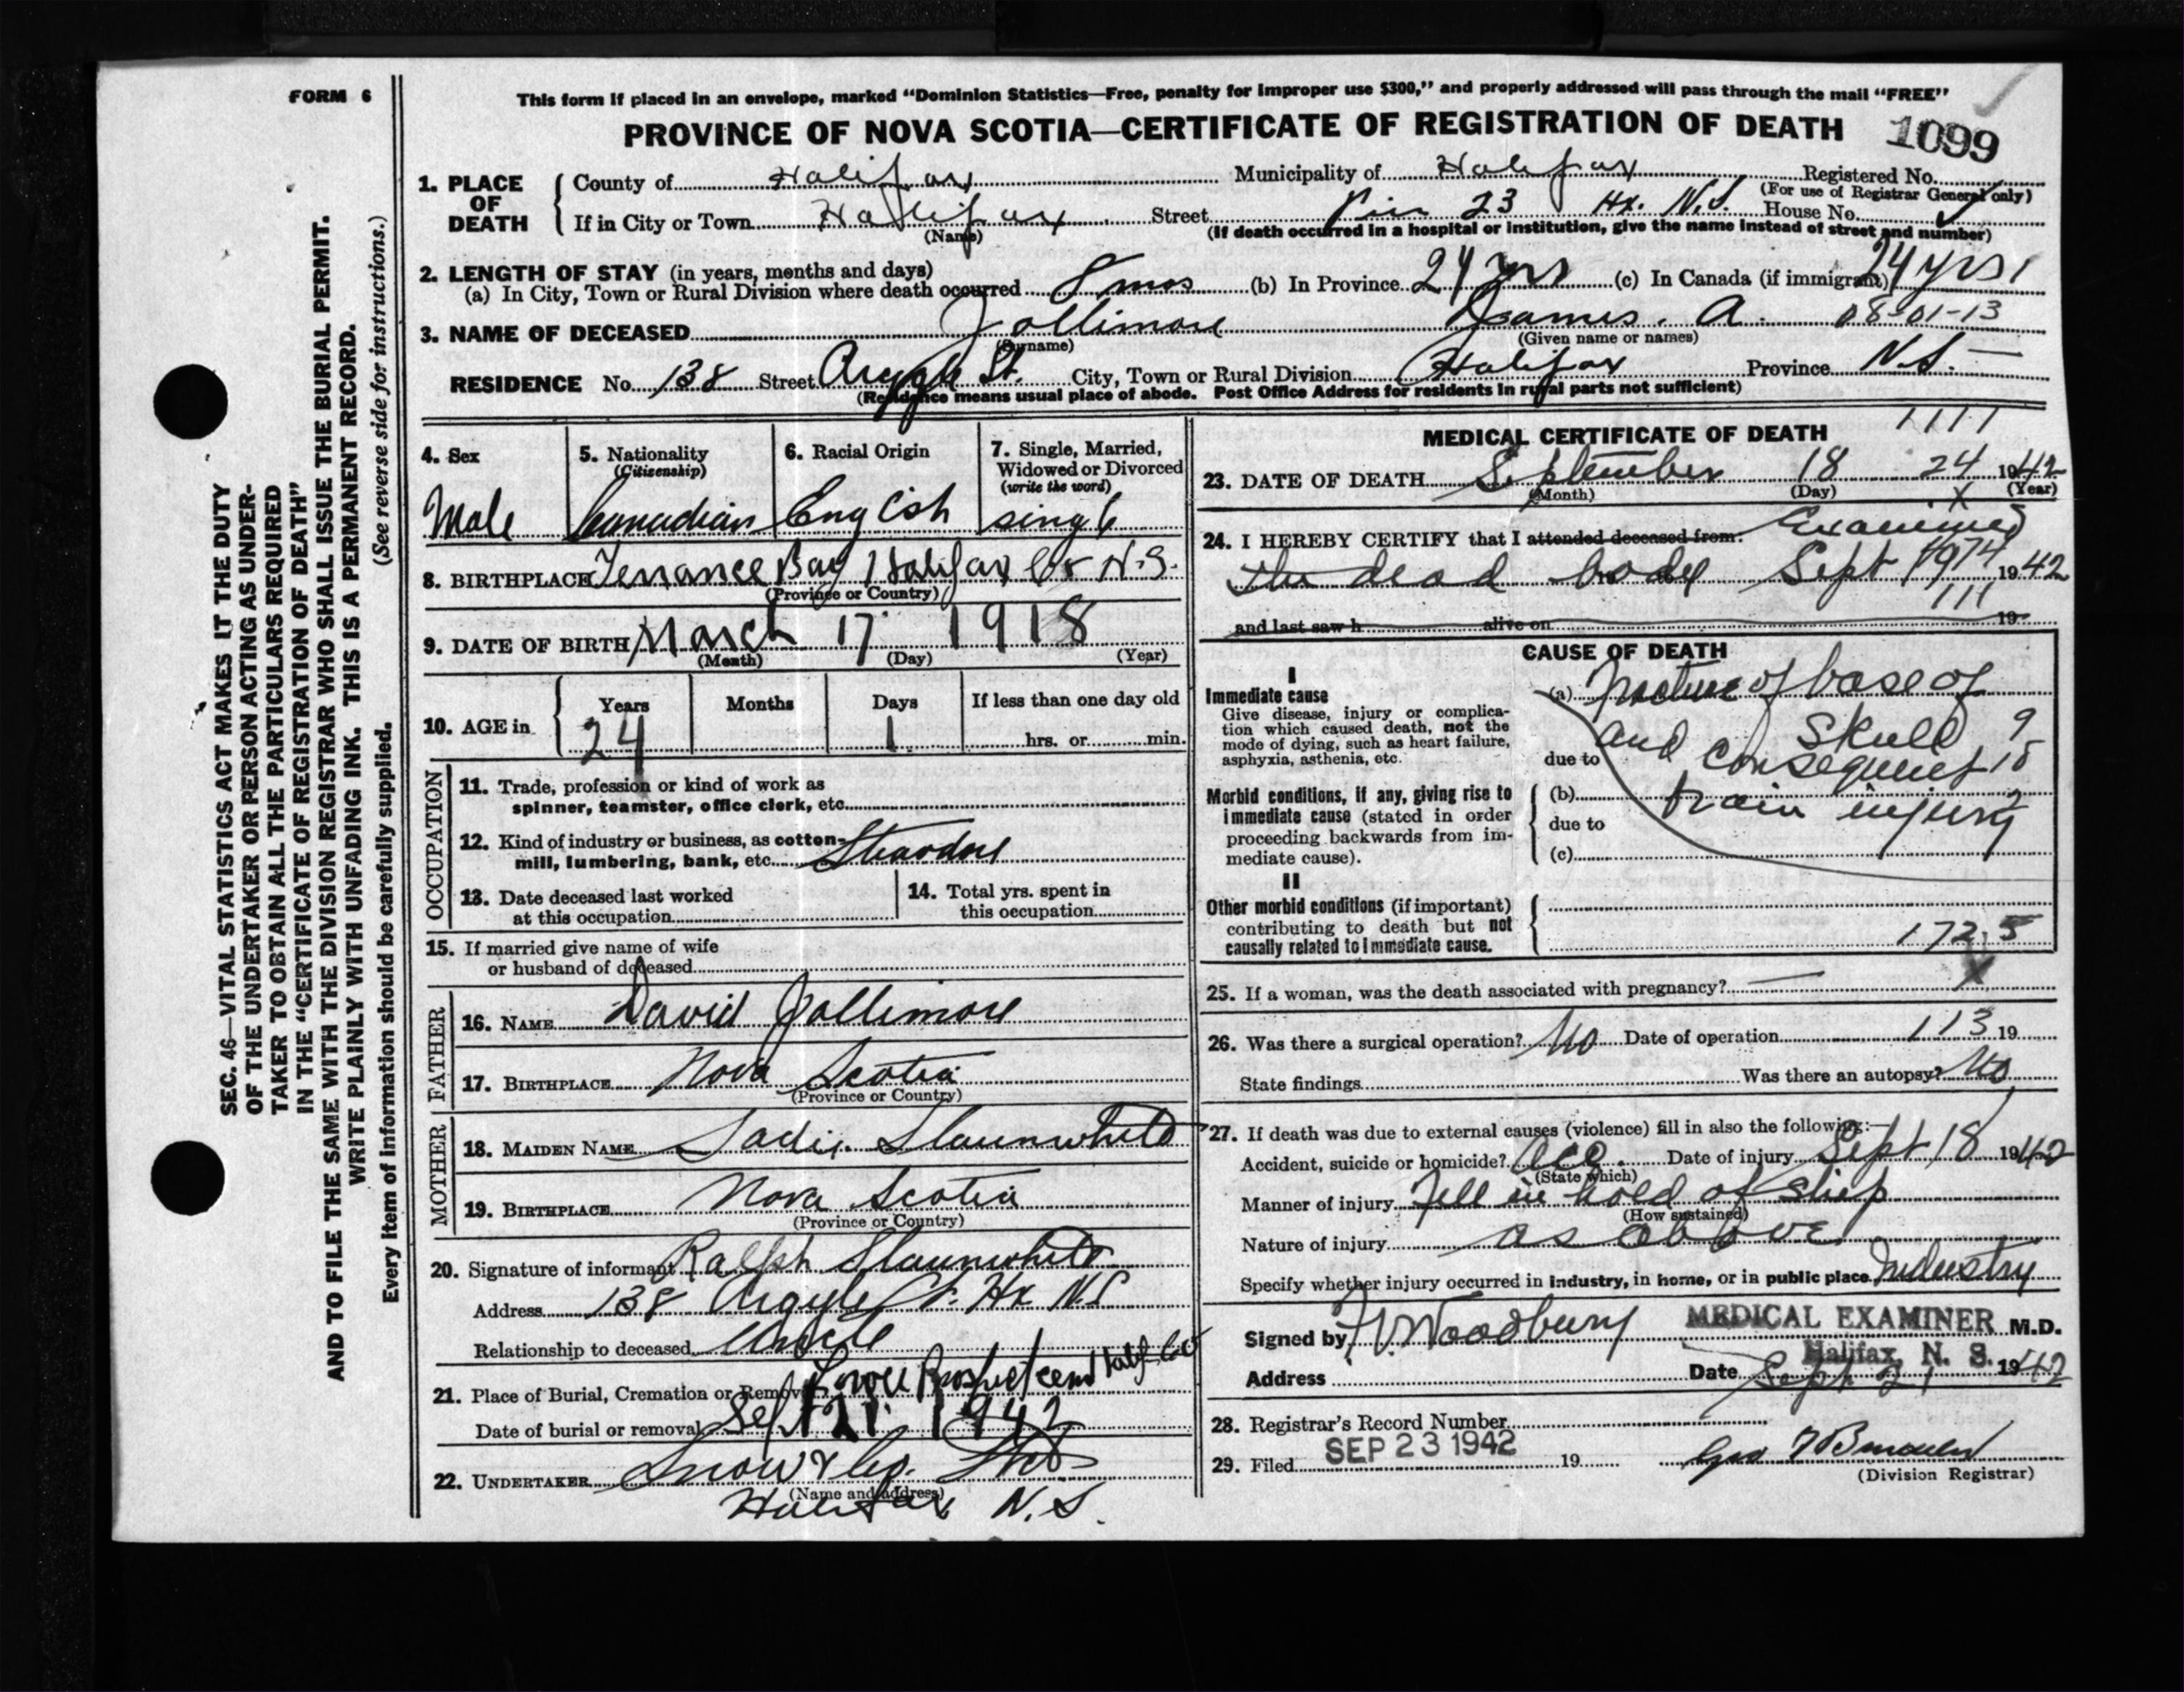 FORM 6
This form if placed in an envelope, marked "Dominion Statistics—Free, penalty for improper use $300," and properly addressed will pass through the mail "FREE"
PROVINCE OF NOVA SCOTIA—CERTIFICATE OF REGISTRATION OF DEATH 1099
1. PLACE OF DEATH
County of Halifax Municipality of Halifax Registered No.
(For use of Registrar General only)
If in City or Town Halifax Street Pier 23 Hx. N.S. House No.
(Name) (If death occurred in a hospital or institution, give the name instead of street and number)
2. LENGTH OF STAY (in years, months and days)
(a) In City, Town or Rural Division where death occurred 8 mos (b) In Province 24 yrs (c) In Canada (if immigrant) 24 yrs
3. NAME OF DECEASED Jollimore James. A. 08-01-13
(Surname) (Given name or names)
RESIDENCE No. 138 Street Argyle St. City, Town or Rural Division Halifax Province N.S.
(Residence means usual place of abode. Post Office Address for residents in rural parts not sufficient)
4. Sex
Male
5. Nationality
(Citizenship)
Canadian
6. Racial Origin
English
7. Single, Married, Widowed or Divorced
(write the word)
single
8. BIRTHPLACE Terrance Bay Halifax Co N.S.
(Province or Country)
9. DATE OF BIRTH March 17 1918
(Month) (Day) (Year)
10. AGE in Years Months Days If less than one day old
24 1 hrs. or min.
OCCUPATION
11. Trade, profession or kind of work as
spinner, teamster, office clerk, etc.
12. Kind of industry or business, as cotton-
mill, lumbering, bank, etc. Stevedore
13. Date deceased last worked
at this occupation
14. Total yrs. spent in
this occupation
15. If married give name of wife
or husband of deceased
FATHER
16. NAME David Jollimore
17. BIRTHPLACE Nova Scotia
(Province or Country)
MOTHER
18. MAIDEN NAME Sadie Slaunwhite
19. BIRTHPLACE Nova Scotia
(Province or Country)
20. Signature of informant Ralph Slaunwhite
Address 138 Argyle St. Hx N.S
Relationship to deceased Uncle
21. Place of Burial, Cremation or Removal Lower Prospect Cem Half. Co
Date of burial or removal Sept 21 1942
22. UNDERTAKER Snow & Co. Ltd
(Name and address)
Halifax N.S.
MEDICAL CERTIFICATE OF DEATH 1111
23. DATE OF DEATH September 18 24 1942
(Month) (Day) (Year)
X
24. I HEREBY CERTIFY that I attended deceased from: Examined
the dead body Sept 19th 1942
111
and last saw h alive on 19
CAUSE OF DEATH
I
Immediate cause
Give disease, injury or complica-
tion which caused death, not the
mode of dying, such as heart failure,
asphyxia, asthenia, etc.
(a) Fracture of base of
Skull 9
due to and consequent 15
Morbid conditions, if any, giving rise to
immediate cause (stated in order
proceeding backwards from im-
mediate cause).
(b) brain injury
due to
(c)
II
Other morbid conditions (if important)
contributing to death but not
causally related to immediate cause.
172.5
X
25. If a woman, was the death associated with pregnancy? —
26. Was there a surgical operation? No Date of operation 113 19
State findings Was there an autopsy? No
27. If death was due to external causes (violence) fill in also the following:—
Accident, suicide or homicide? Acc. Date of injury Sept 18 1942
(State which)
Manner of injury Fell in hold of ship
(How sustained)
Nature of injury as above
Specify whether injury occurred in industry, in home, or in public place Industry
Signed by Woodbury MEDICAL EXAMINER M.D.
Halifax, N. S.
Address Date Sept 21 1942
28. Registrar's Record Number
29. Filed SEP 23 1942 19
(Division Registrar)
SEC. 46—VITAL STATISTICS ACT MAKES IT THE DUTY
OF THE UNDERTAKER OR PERSON ACTING AS UNDER-
TAKER TO OBTAIN ALL THE PARTICULARS REQUIRED
IN THE "CERTIFICATE OF REGISTRATION OF DEATH"
AND TO FILE THE SAME WITH THE DIVISION REGISTRAR WHO SHALL ISSUE THE BURIAL PERMIT.
WRITE PLAINLY WITH UNFADING INK. THIS IS A PERMANENT RECORD.
(See reverse side for instructions.)
Every item of information should be carefully supplied.